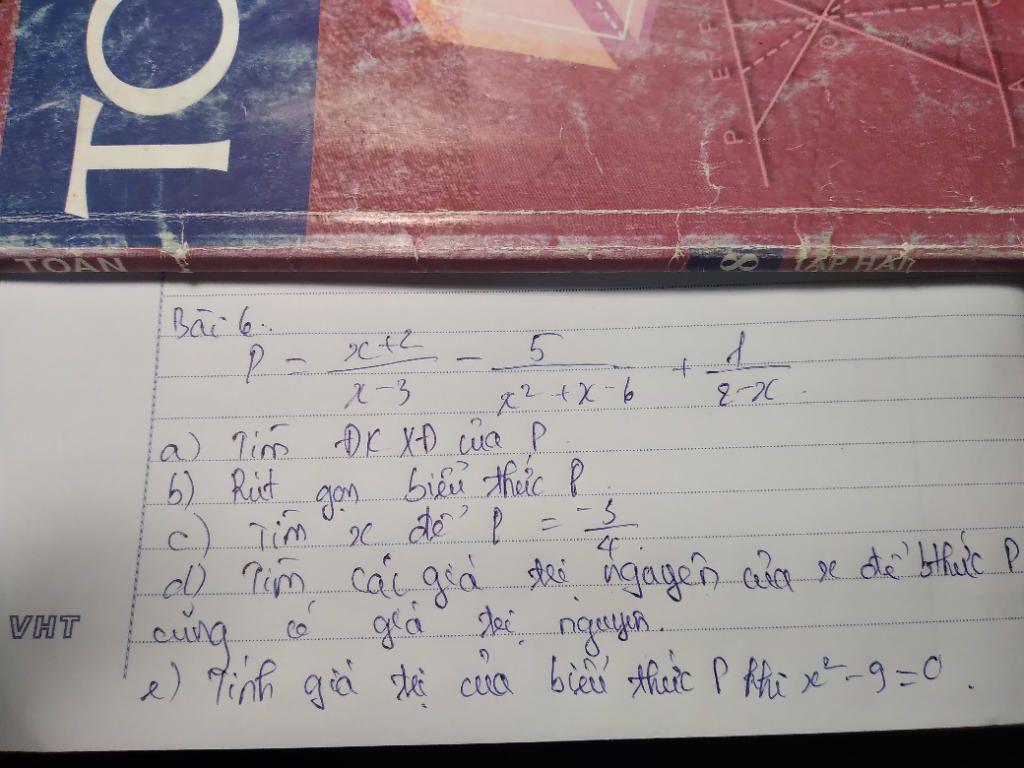 TO
P
E
F
O
TOÁN
8
TẬP HAI
Bài 6.
P = \frac{x+2}{x-3} - \frac{5}{x^2+x-6} + \frac{1}{2-x}.
a) Tìm ĐKXĐ của P.
b) Rút gọn biểu thức P.
c) Tìm x để P = \frac{-3}{4}.
d) Tìm các giá trị ngagên của x để bthức P
cũng có giá trị nguyen.
VHT
e) Tính giá trị của biểu thức P khi x² - 9 = 0.